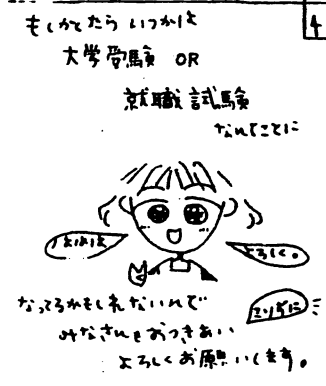 4
もしかしたら いつかは
大学受験 OR
就職試験
なんてことに
よろしく。
こりずに
なってるかもしれないんで
みなさんもおつきあい
よろしくお願いします。